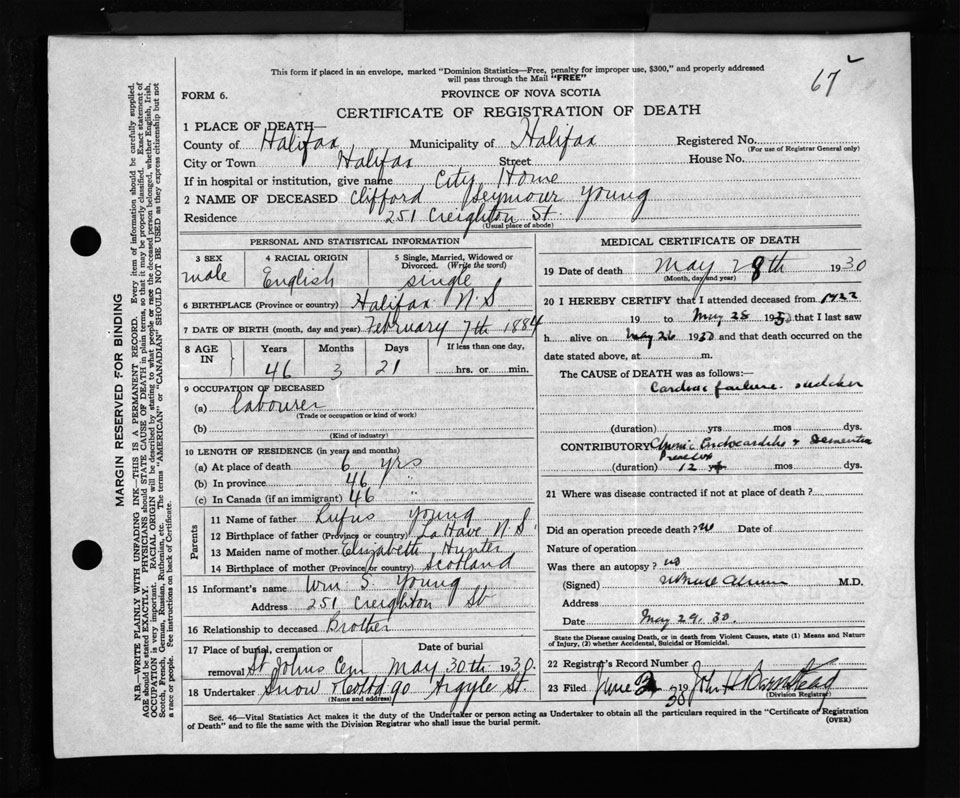 67
This form if placed in an envelope, marked "Dominion Statistics—Free, penalty for improper use, $300," and properly addressed
will pass through the Mail "FREE"
FORM 6.
PROVINCE OF NOVA SCOTIA
CERTIFICATE OF REGISTRATION OF DEATH
1 PLACE OF DEATH—
County of Halifax Municipality of Halifax Registered No.
(For use of Registrar General only)
City or Town Halifax Street House No.
If in hospital or institution, give name City Home
2 NAME OF DECEASED Clifford Seymour Young
Residence 251 Creighton St.
(Usual place of abode)
PERSONAL AND STATISTICAL INFORMATION
3 SEX 4 RACIAL ORIGIN 5 Single, Married, Widowed or
Divorced. (Write the word)
male English single
6 BIRTHPLACE (Province or country) Halifax N.S
7 DATE OF BIRTH (month, day and year) February 7th 1884
8 AGE IN Years Months Days If less than one day,
46 3 21 hrs. or min.
9 OCCUPATION OF DECEASED
(a) Labourer
(Trade or occupation or kind of work)
(b)
(Kind of industry)
10 LENGTH OF RESIDENCE (in years and months)
(a) At place of death 6 yrs
(b) In province 46 "
(c) In Canada (if an immigrant) 46 "
Parents
11 Name of father Rufus Young
12 Birthplace of father (Province or country) LaHave N.S.
13 Maiden name of mother Elizabeth Hunter
14 Birthplace of mother (Province or country) Scotland
15 Informant's name Wm S. Young
Address 251 Creighton St
16 Relationship to deceased Brother
17 Place of burial, cremation or Date of burial
removal St Johns Cem May 30th 1930.
18 Undertaker Snow & Co Ltd 90 Argyle St.
(Name and address)
MEDICAL CERTIFICATE OF DEATH
19 Date of death May 28th 1930
(Month, day and year)
20 I HEREBY CERTIFY that I attended deceased from 1922
19 to May 28 1930 that I last saw
h alive on May 26 1930 and that death occurred on the
date stated above, at m.
The CAUSE of DEATH was as follows:—
Cardiac failure. sudden
(duration) yrs mos dys.
CONTRIBUTORY Chronic Endocarditis & Dementia
Praecox
(duration) 12 yrs mos dys.
21 Where was disease contracted if not at place of death?
Did an operation precede death? no Date of
Nature of operation
Was there an autopsy? no
(Signed) M.D.
Address
Date May 29. 30.
State the Disease causing Death, or in death from Violent Causes, state (1) Means and Nature
of Injury, (2) whether Accidental, Suicidal or Homicidal.
22 Registrar's Record Number
23 Filed June 2 1930 John
(Division Registrar)
Sec. 46—Vital Statistics Act makes it the duty of the Undertaker or person acting as Undertaker to obtain all the particulars required in the "Certificate of Registration
of Death" and to file the same with the Division Registrar who shall issue the burial permit.
(OVER)
MARGIN RESERVED FOR BINDING
N.B.—WRITE PLAINLY WITH UNFADING INK—THIS IS A PERMANENT RECORD. Every item of information should be carefully supplied.
AGE should be stated EXACTLY. PHYSICIANS should STATE CAUSE OF DEATH in plain terms, so that it may be properly classified. Exact statement of
OCCUPATION is very important. RACIAL ORIGIN will be described by stating to what people or race the deceased person belonged, whether English, Irish,
Scotch, French, German, Russian, Ruthenian, etc. The terms "AMERICAN" or "CANADIAN" SHOULD NOT BE USED as they express citizenship but not
a race or people. See instructions on back of Certificate.